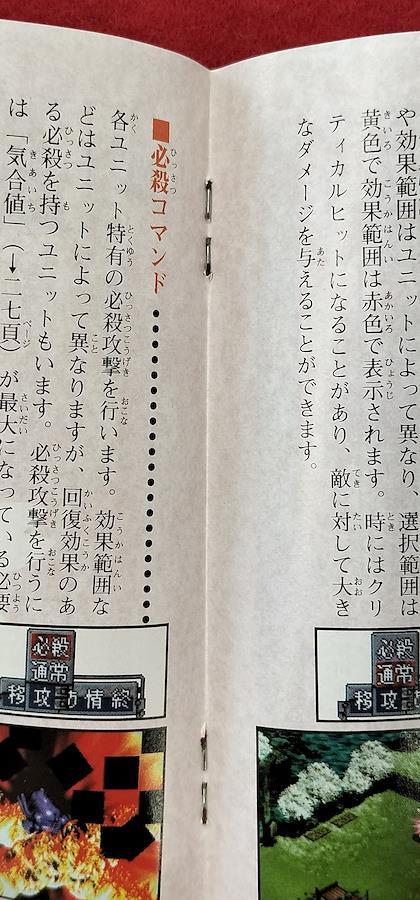 や効果範囲はユニットによって異なり、選択範囲は
黄色で効果範囲は赤色で表示されます。時にはクリ
ティカルヒットになることがあり、敵に対して大き
なダメージを与えることができます。
必殺
通常
移攻
■必殺コマンド
各ユニット特有の必殺攻撃を行います。効果範囲な
どはユニットによって異なりますが、回復効果のあ
る必殺を持つユニットもいます。必殺攻撃を行うに
は「気合値」(→二七頁)が最大になっている必要
必殺
通常
移攻防情終